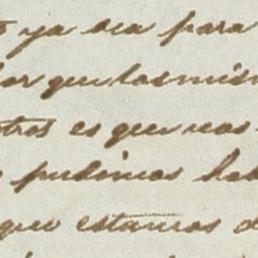 ya sea para
que los mis
otros es que nos
pudimos hab
que estamos d